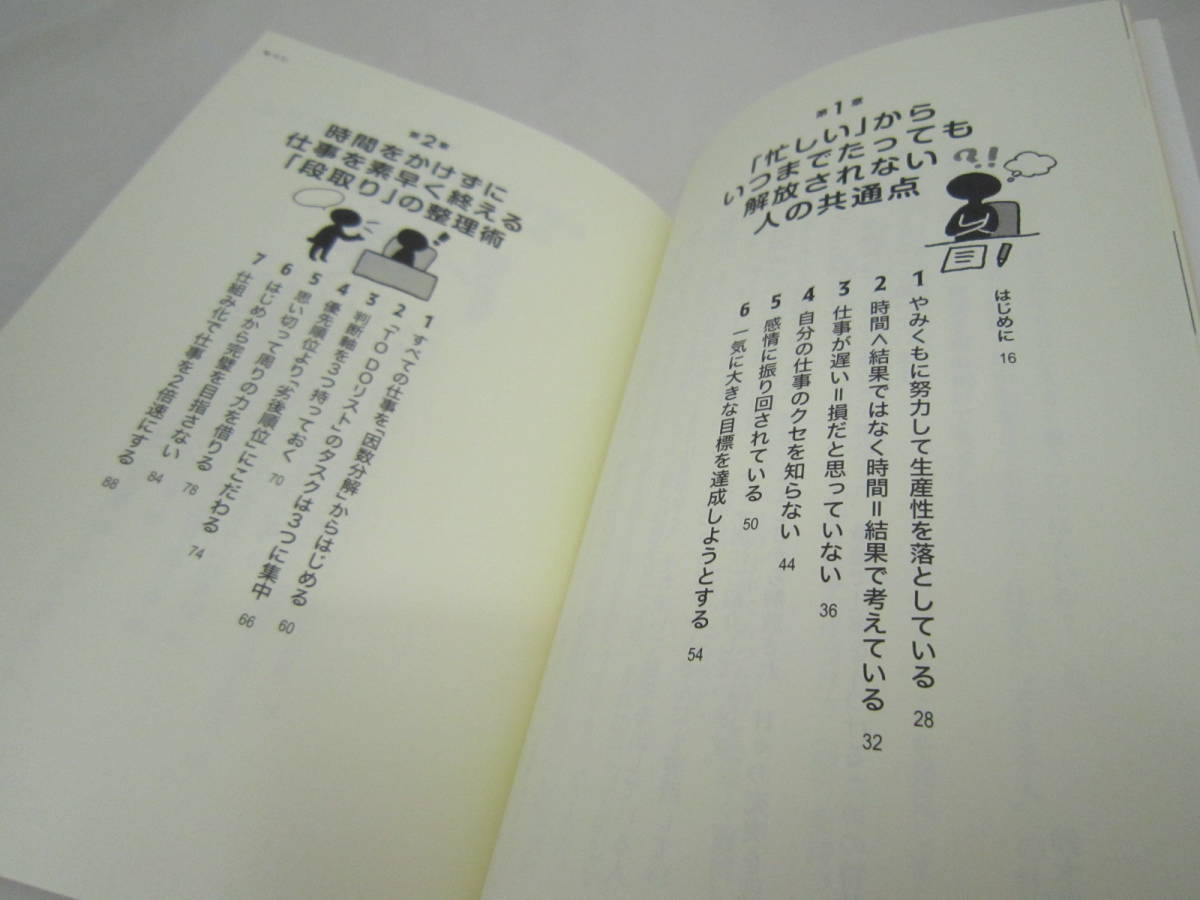 第1章
「忙しい」から
いつまでたっても
解放されない
人の共通点
?!
はじめに 16
1 やみくもに努力して生産性を落としている 28
2 時間へ結果ではなく時間＝結果で考えている 32
3 仕事が遅い＝損だと思っていない 36
4 自分の仕事のクセを知らない 44
5 感情に振り回されている 50
6 一気に大きな目標を達成しようとする 54
第2章
時間をかけずに
仕事を素早く終える
「段取り」の整理術
!
1 すべての仕事を「因数分解」からはじめる 60
2 「TO DOリスト」のタスクは3つに集中 66
3 判断軸を3つ持っておく 70
4 優先順位より「劣後順位」にこだわる 74
5 思い切って周りの力を借りる 78
6 はじめから完璧を目指さない 84
7 仕組み化で仕事を2倍速にする 88